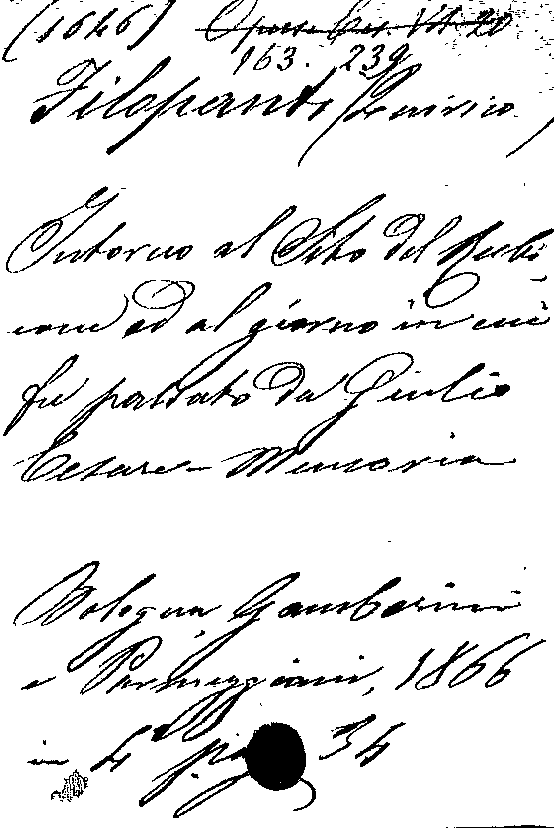 (1646) Opusc. Ces. VII. 20
163. 239
Filopanti (Quirico)
Intorno al Sito del Rubi-
cone ed al giorno in cui
fu passato da Giulio
Cesare - Memoria
Bologna, Gamberini
e Parmeggiani, 1866
in 4° pig 34